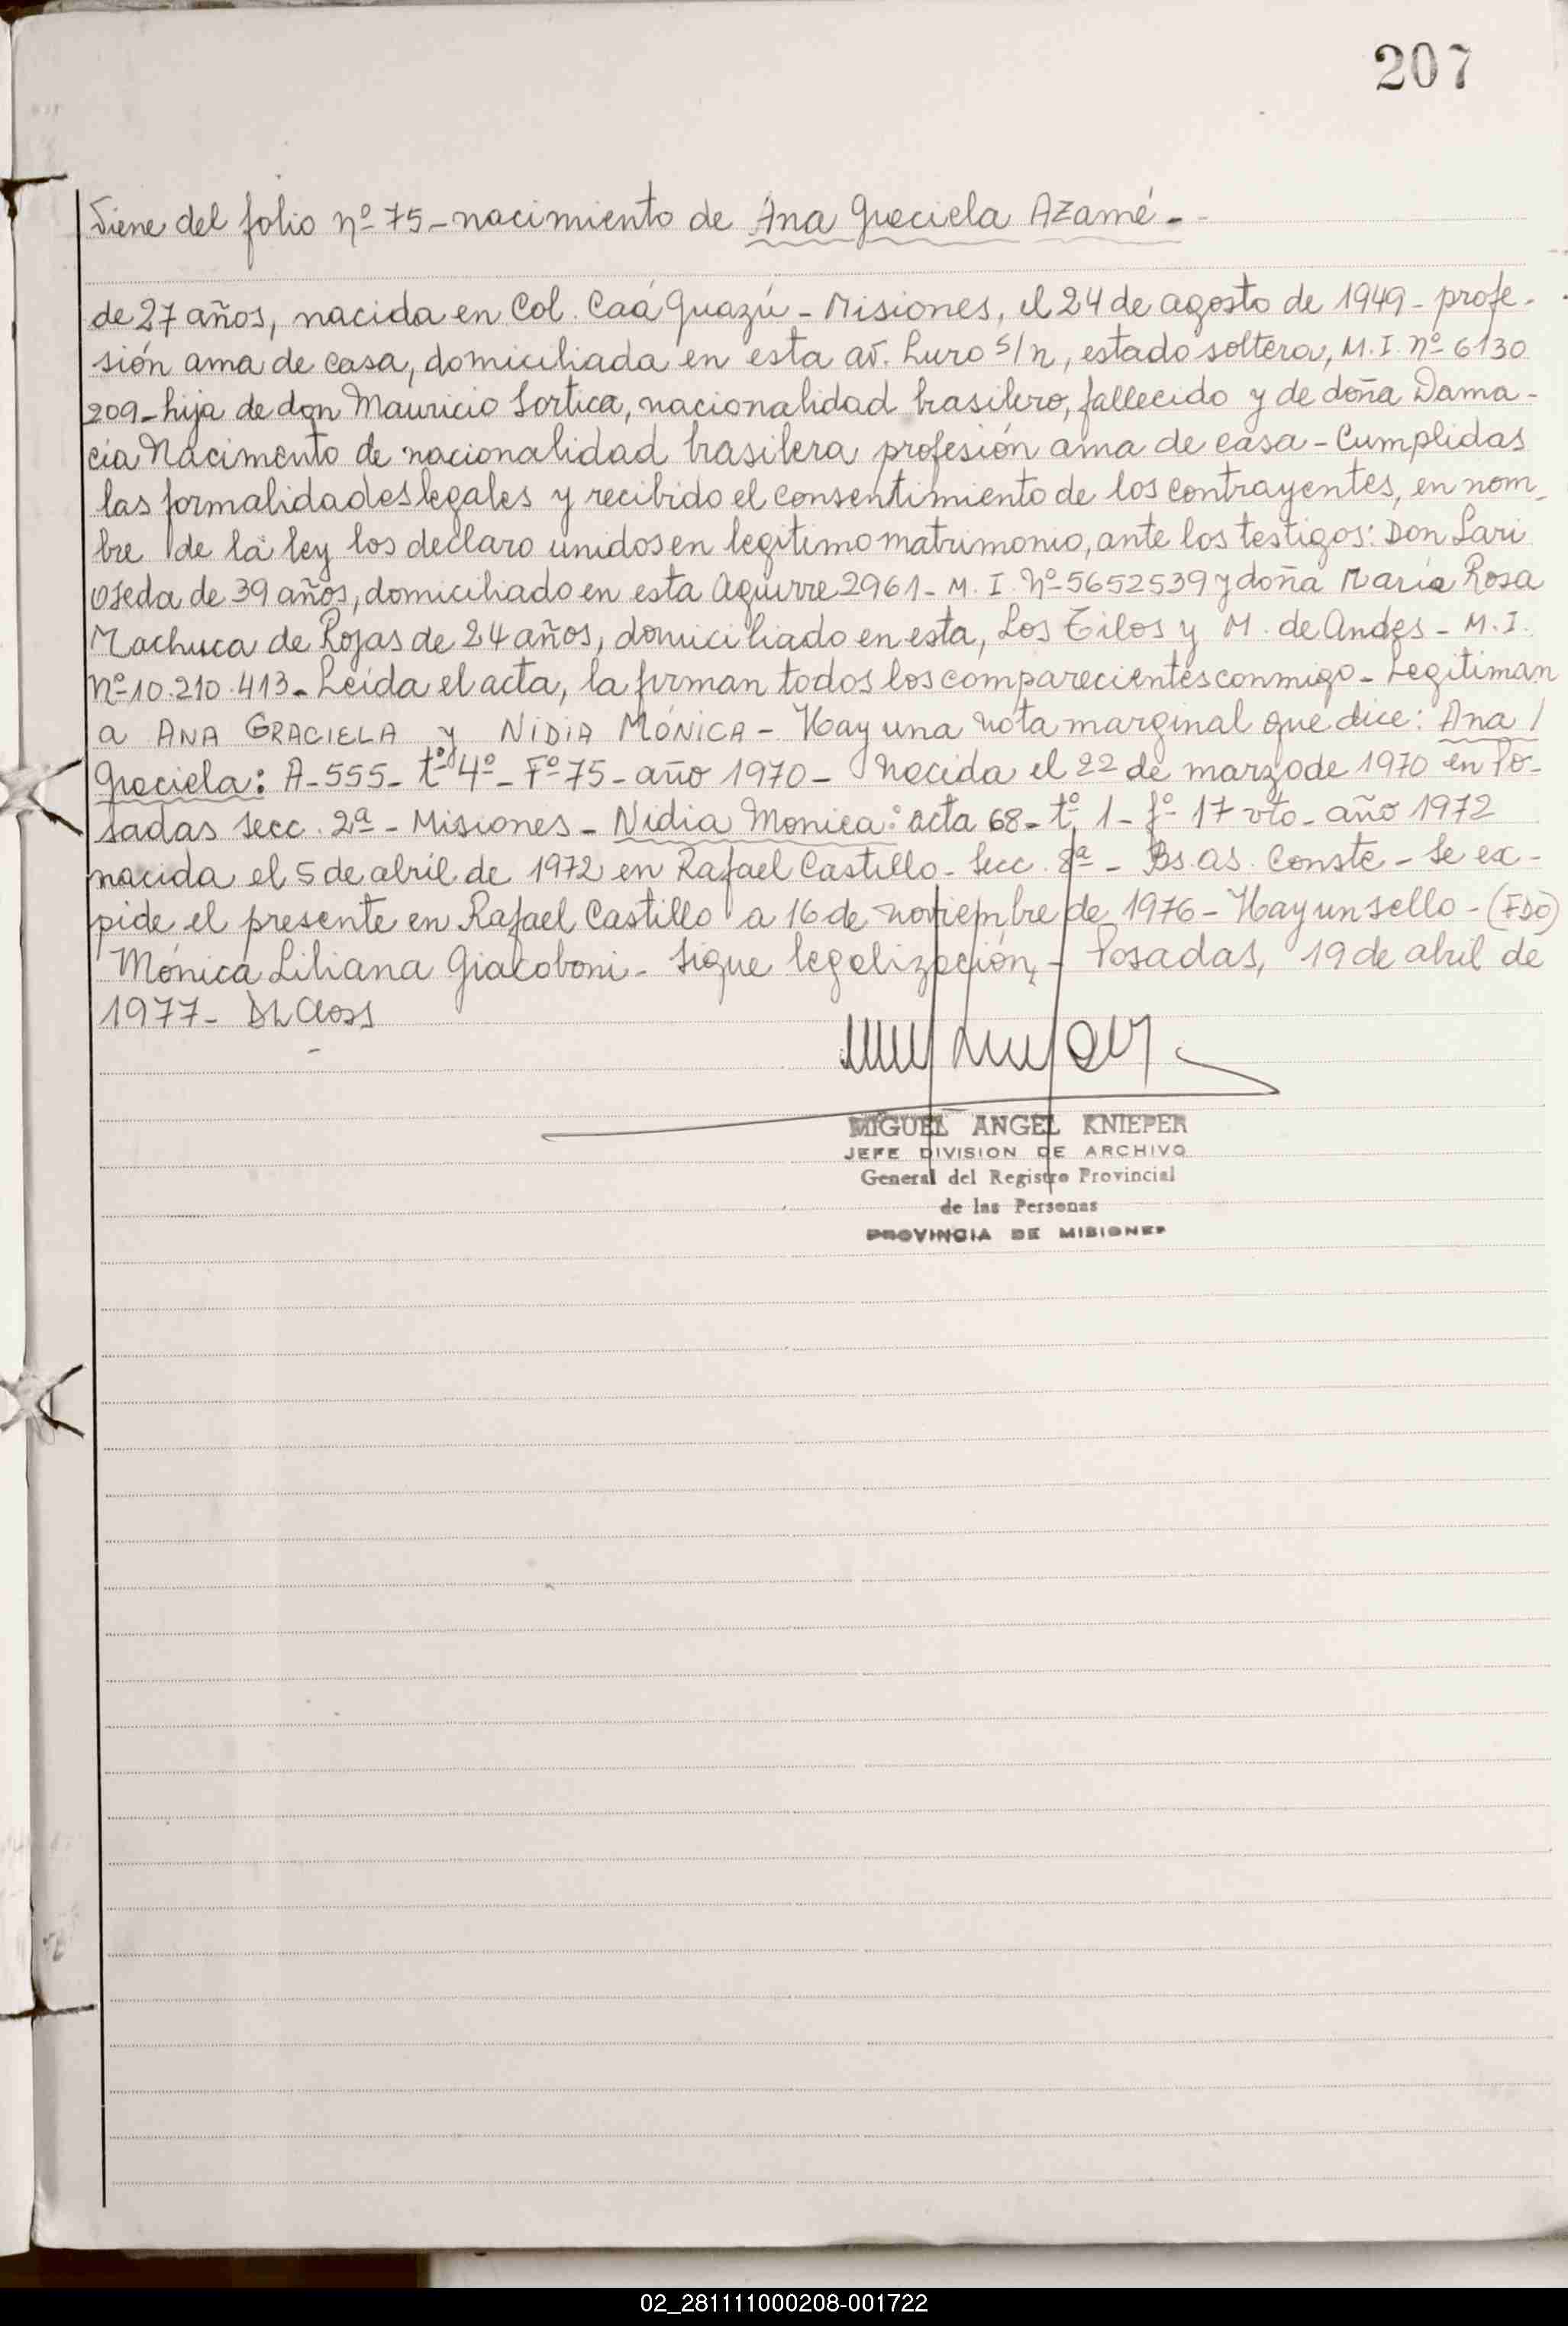 207
Viene del folio nº 75 - nacimiento de Ana Graciela Azamé - -
de 27 años, nacida en Col. Caá Guazú - Misiones, el 24 de agosto de 1949 - profe-
sión ama de casa, domiciliada en esta av. Luro s/n, estado soltera, M.I. nº 6130
209 - hija de don Mauricio Sortica, nacionalidad brasilero, fallecido y de doña Dama-
cia Nacimento de nacionalidad brasilera profesión ama de casa - Cumplidas
las formalidades legales y recibido el consentimiento de los contrayentes, en nom-
bre de la ley los declaro unidos en legitimo matrimonio, ante los testigos: Don Lari
Oseda de 39 años, domiciliado en esta Aguirre 2961 - M.I. Nº 5652539 y doña María Rosa
Machuca de Rojas de 24 años, domiciliado en esta, Los Tilos y M. de Andes - M.I.
Nº 10.210.413 - Leída el acta, la firman todos los comparecientes conmigo - Legitiman
a ANA GRACIELA y NIDIA MÓNICA - Hay una nota marginal que dice: Ana /
Graciela: A-555 - tº 4º - Fº 75 - año 1970 - nacida el 22 de marzo de 1970 en Po-
sadas secc. 2ª - Misiones - Nidia Monica: acta 68 - tº 1 - fº 17 vto - año 1972
nacida el 5 de abril de 1972 en Rafael Castillo - Secc. 8ª - Bs. as. Conste - Se ex-
pide el presente en Rafael Castillo a 16 de noviembre de 1976 - Hay un sello - (FDO)
Mónica Liliana Giacoboni - Sigue legalización, - Posadas, 19 de abril de
1977 -
MIGUEL ANGEL KNIEPER
JEFE DIVISION DE ARCHIVO
General del Registro Provincial
de las Personas
PROVINCIA DE MISIONES
02_281111000208-001722